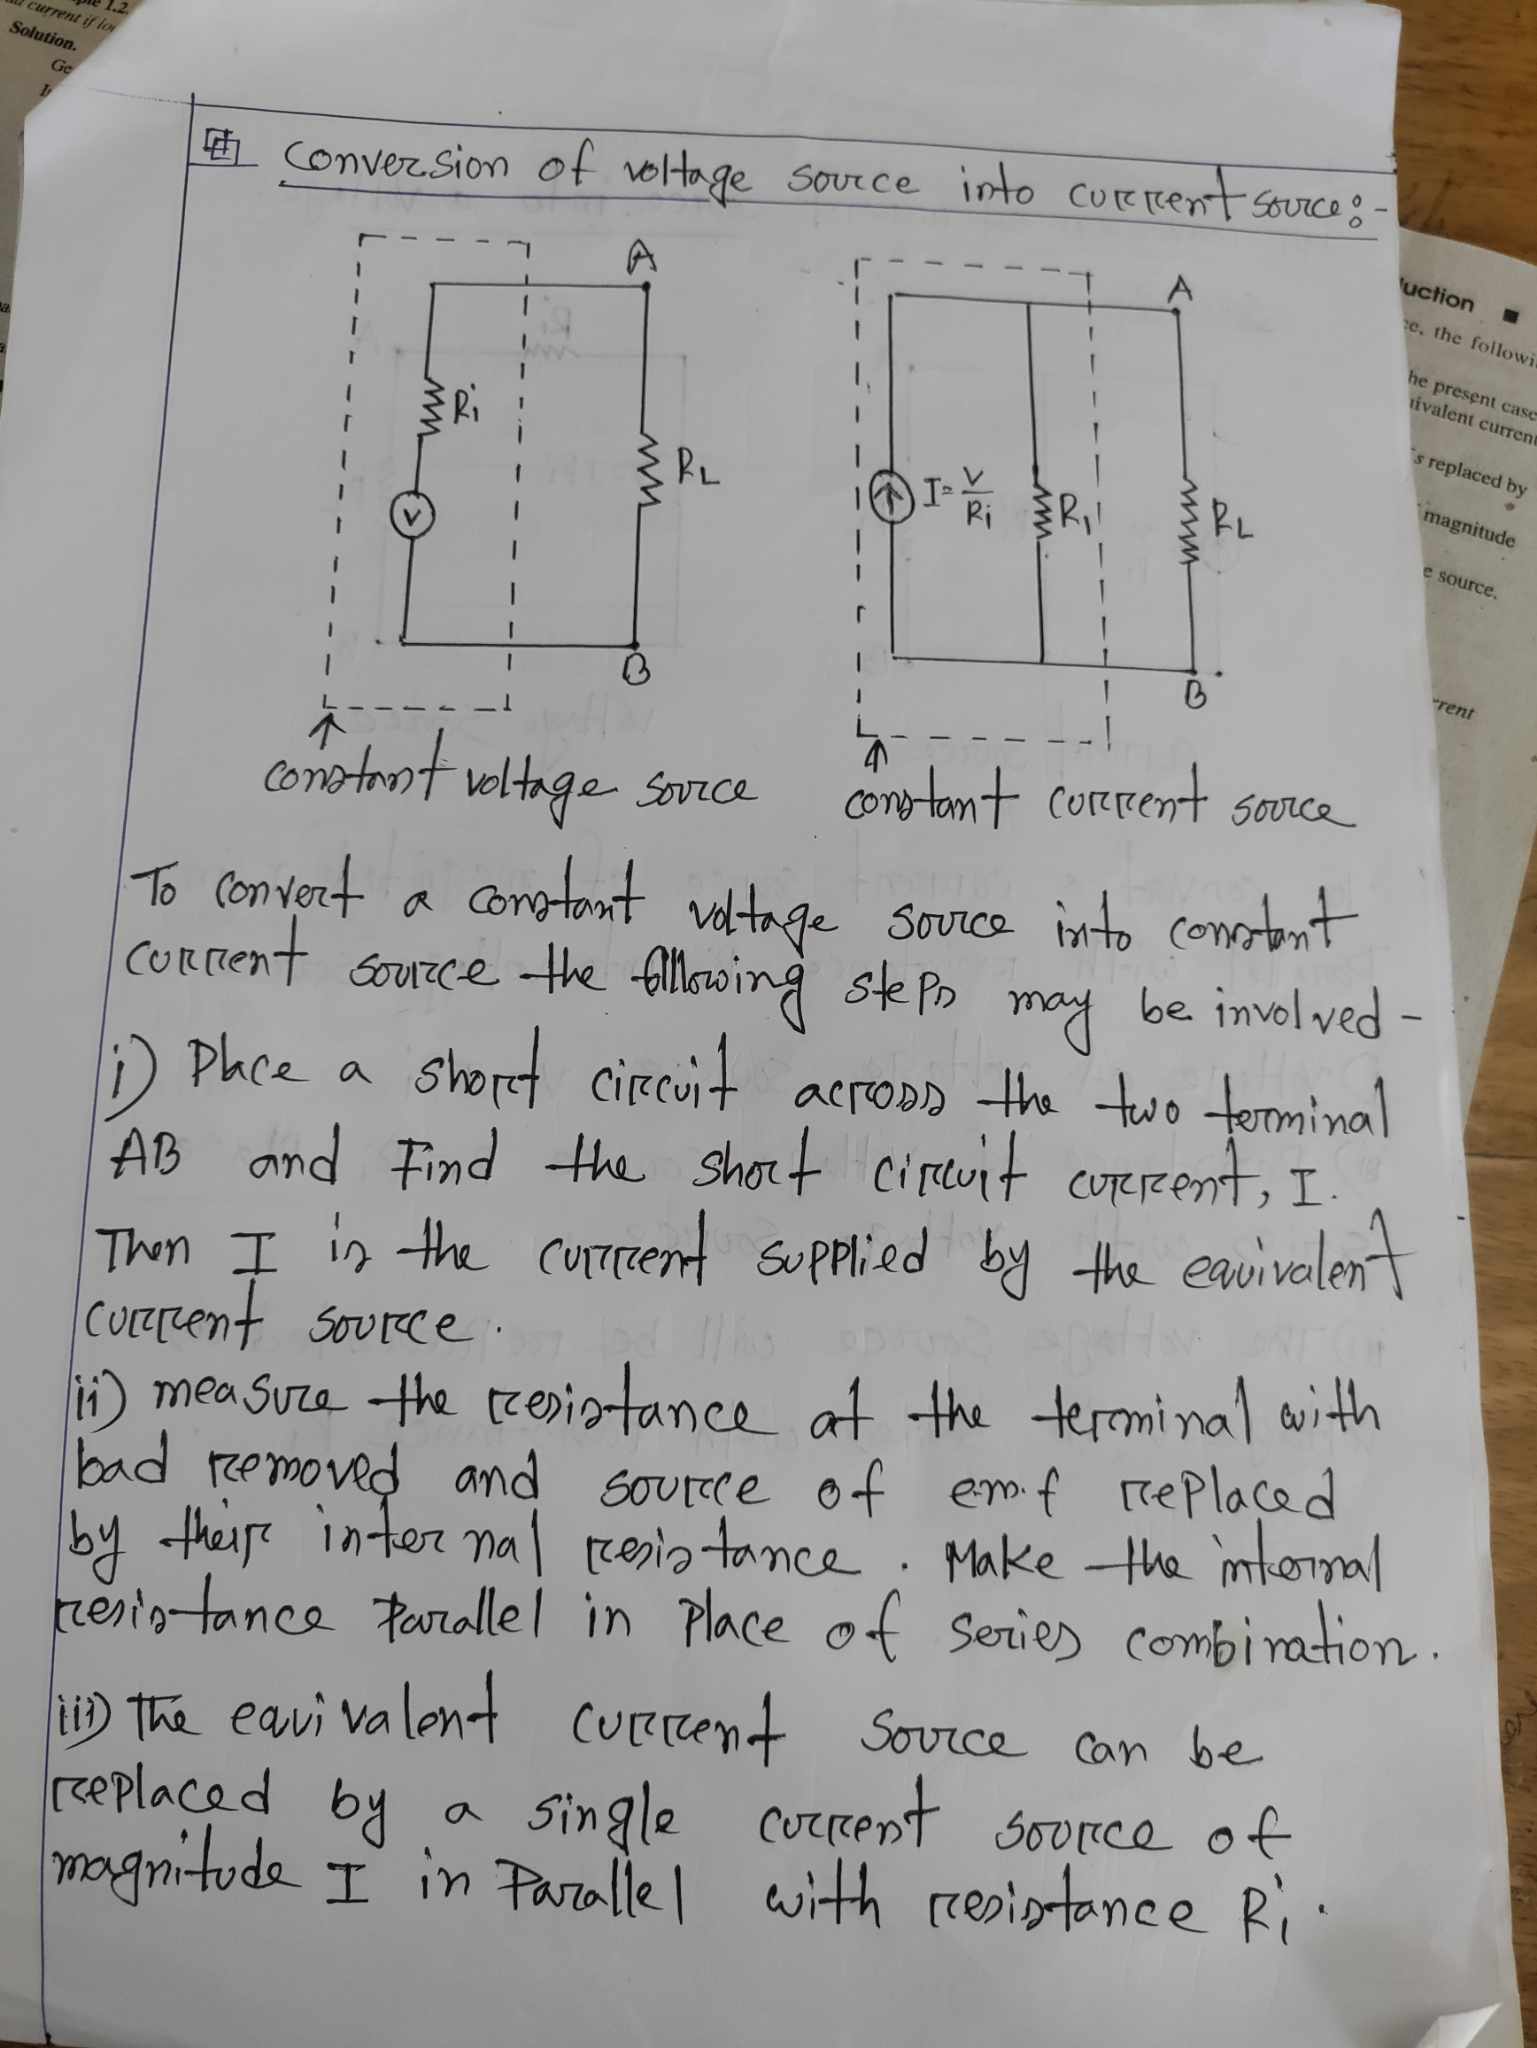 ple 1.2.
current if lo
Solution.
Ge
Conversion of voltage source into current source:-
A
A
Ri
RL
V
I = V/Ri
R1
RL
B
B
constant voltage source
constant current source
To convert a constant voltage source into constant
current source the following steps may be involved -
i) Place a short circuit across the two terminal
AB and Find the short circuit current, I.
Then I is the current supplied by the equivalent
current source.
ii) measure the resistance at the terminal with
load removed and source of e.m.f replaced
by their internal resistance. Make the internal
resistance Parallel in place of series combination.
iii) The equivalent current source can be
replaced by a single current source of
magnitude I in Parallel with resistance Ri.
uction
ce, the followi
he present case
uivalent current
s replaced by
magnitude
e source.
rrent